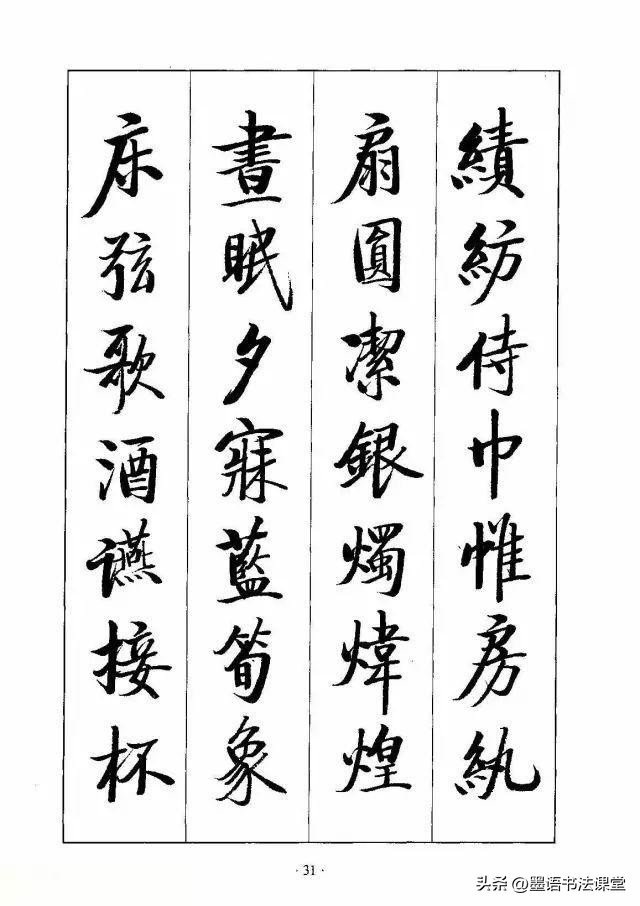 績紡侍巾帷房紈
扇圓潔銀燭煒煌
晝眠夕寐藍筍象
床弦歌酒讌接杯
· 31 ·
头条 @墨语书法课堂